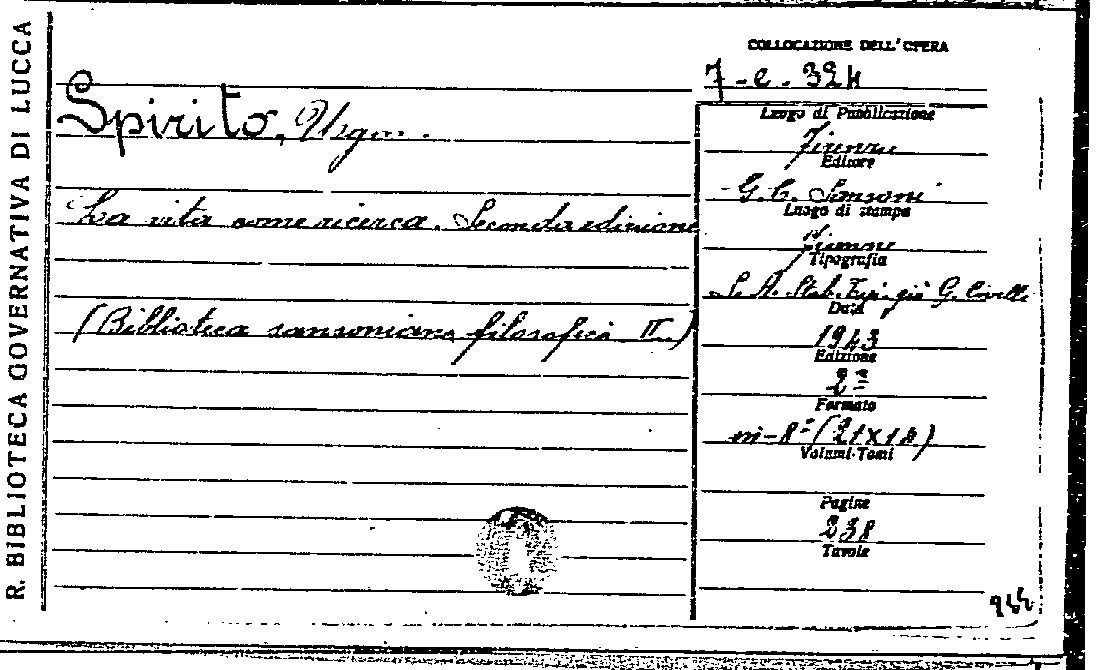 R. BIBLIOTECA GOVERNATIVA DI LUCCA
Spirito, Ugo.
La vita come ricerca. Seconda edizione
(Biblioteca sansoniana filosofica II.)
COLLOCAZIONE DELL'OPERA
7-e-324
Luogo di Pubblicazione
Firenze
Editore
G. C. Sansoni
Luogo di stampa
Firenze
Tipografia
S. A. Stab. Tip. già G. Civelli
Data
1943
Edizione
2ª
Formato
in-8° (21x14)
Volumi-Tomi
Pagine
238
Tavole
944